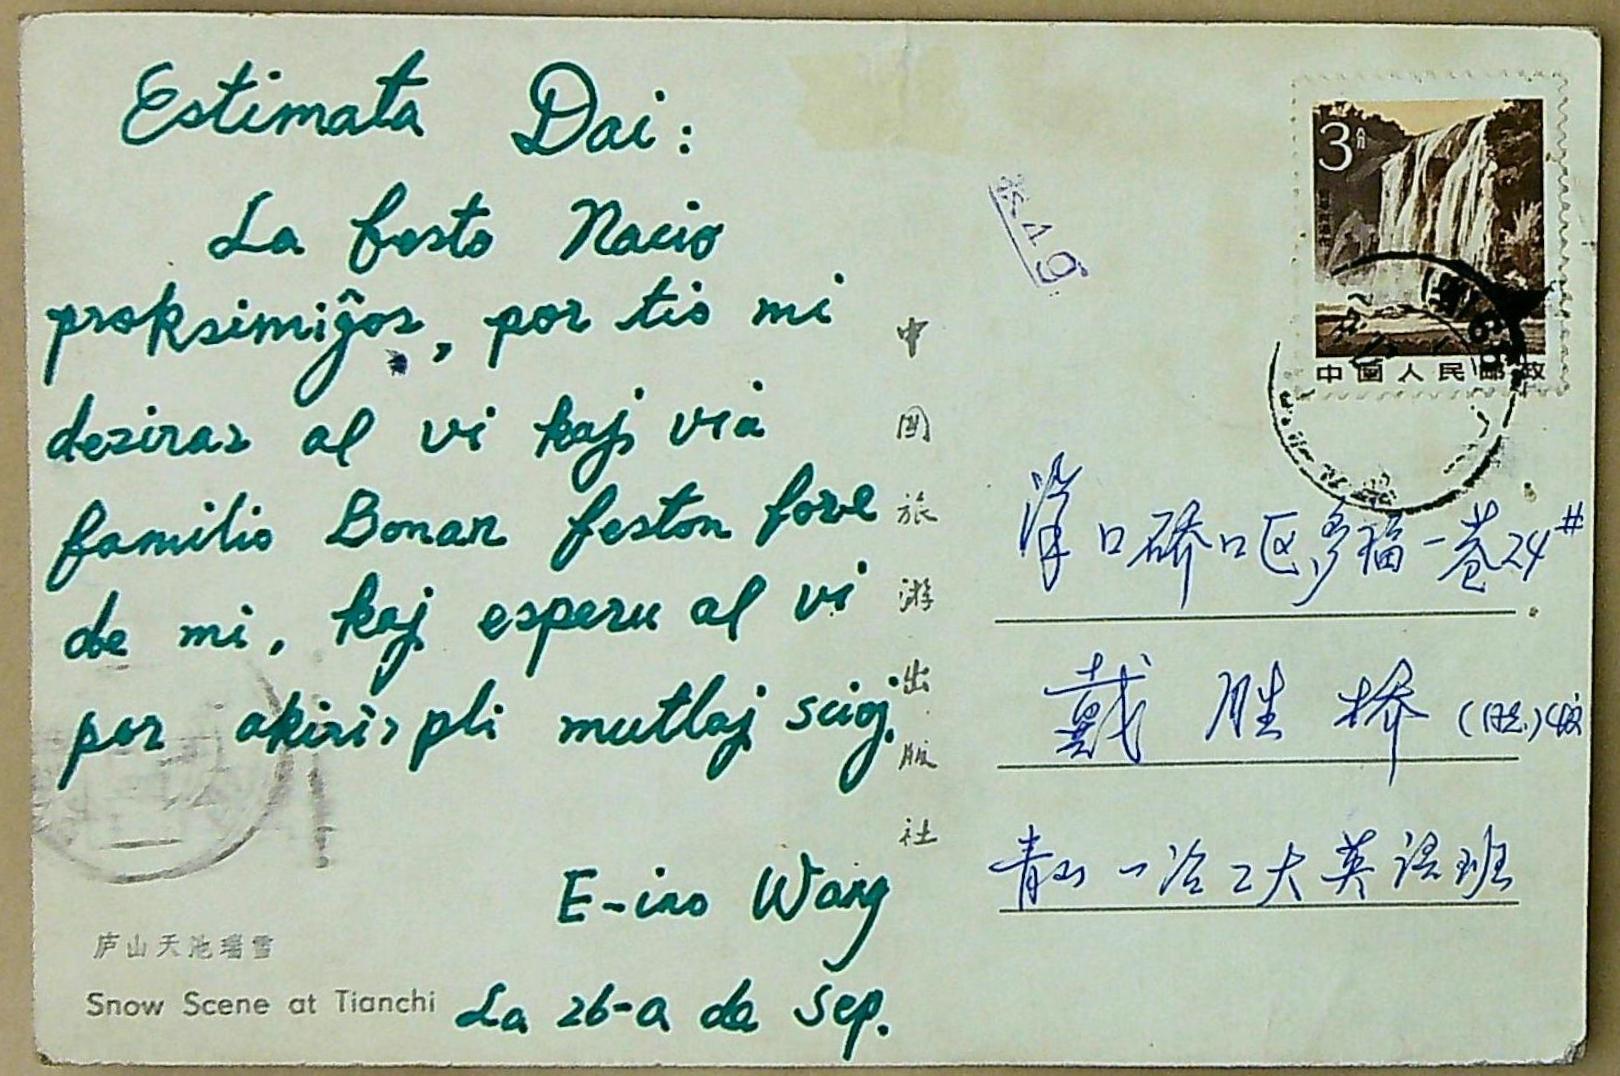 Estimata Dai:
La festo Nacio
proksimiĝos, por tio mi
deziras al vi kaj via
familio Bonan feston fore
de mi, kaj esperu al vi
por akiris pli multaj scioj.
E-ino Wang
La 26-a de Sep.
庐山天池瑞雪
Snow Scene at Tianchi
中国旅游出版社
3分
中国人民邮政
汉口硚口区多福一巷24#
戴胜桥
青山一冶工大英语班